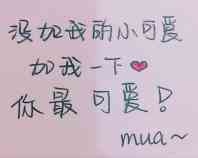 没加我的小可爱
加我一下❤
你最可爱!
mua~